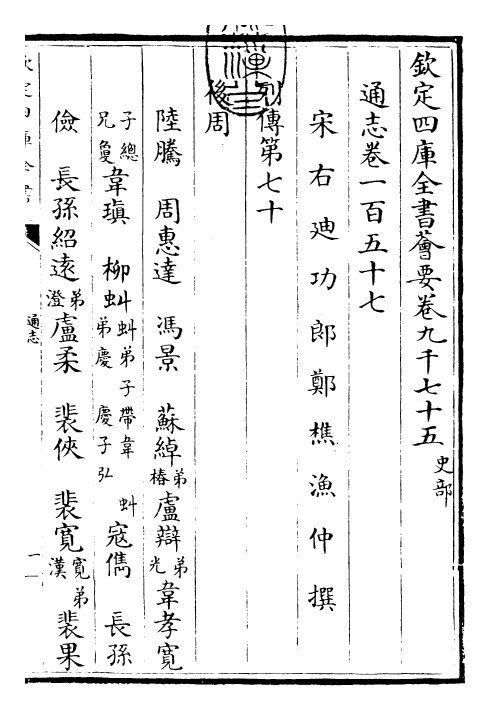 欽定四庫全書薈要卷九千七十五 史部
通志卷一百五十七
宋右迪功郎鄭樵漁仲撰
列傳第七十
後周
陸騰 周惠達 馮景 蘇綽弟椿盧辯弟光韋孝寬
子總兄夐韋瑱 柳蚪蚪弟子帶韋 蚪弟慶 慶子弘 寇儁 長孫
儉 長孫紹遠弟澄盧柔 裴俠 裴寬寬弟漢 裴果
通志
一